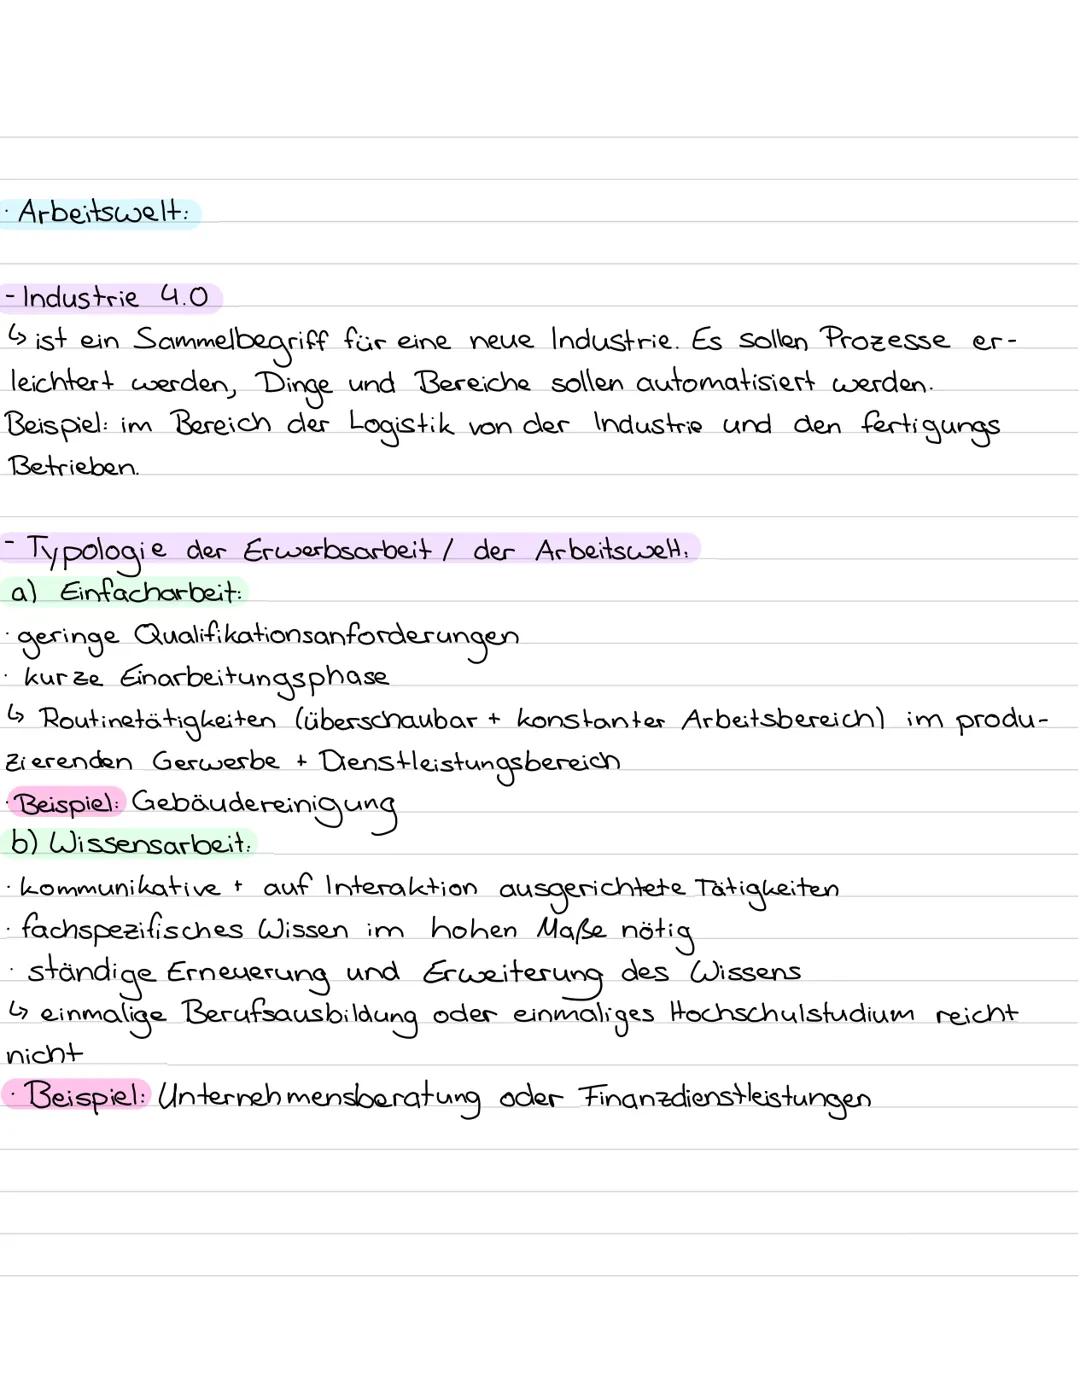 · Arbeitswelt:
- Industrie 4.0
↳ ist ein Sammelbegriff für eine neue Industrie. Es sollen Prozesse er-
leichtert werden, Dinge und Bereiche sollen automatisiert werden.
Beispiel: im Bereich der Logistik von der Industrie und den fertigungs
Betrieben.
- Typologie der Erwerbsarbeit / der Arbeitswelt:
a) Einfacharbeit:
· geringe Qualifikationsanforderungen
· kurze Einarbeitungsphase
↳ Routinetätigkeiten (überschaubar + konstanter Arbeitsbereich) im produ-
zierenden Gerwerbe + Dienstleistungsbereich
· Beispiel: Gebäudereinigung
b) Wissensarbeit:
· kommunikative + auf Interaktion ausgerichtete Tätigkeiten
· fachspezifisches Wissen im hohen Maße nötig
· ständige Erneuerung und Erweiterung des Wissens
↳ einmalige Berufsausbildung oder einmaliges Hochschulstudium reicht
nicht
· Beispiel: Unternehmensberatung oder Finanzdienstleistungen